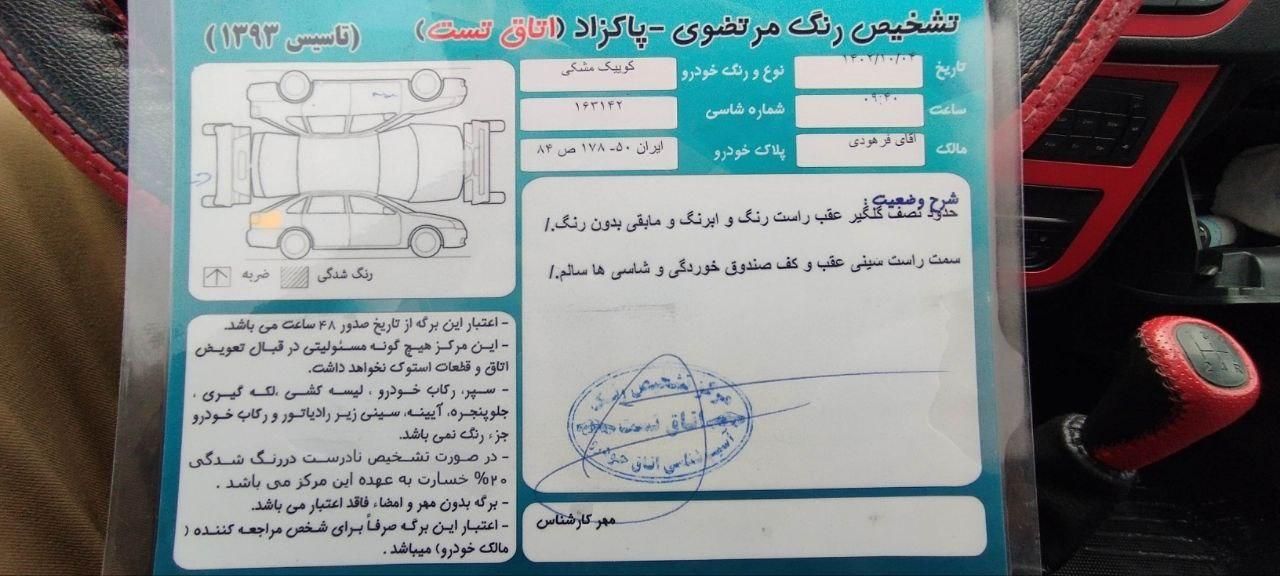 تشخیص رنگ مرتضوی - پاکزاد (اتاق تست) (تاسیس ۱۳۹۳)
تاریخ ۱۴۰۲/۱۰/۰۴ نوع و رنگ خودرو کوییک مشکی
ساعت ۰۹:۴۰ شماره شاسی ۱۶۳۱۴۲
مالک آقای فرهودی پلاک خودرو ایران ۵۰- ۱۷۸ ص ۸۴
شرح وضعیت :
حدود نصف گلگیر عقب راست رنگ و ابرنگ و مابقی بدون رنگ./
سمت راست سینی عقب و کف صندوق خوردگی و شاسی ها سالم./
مهر کارشناس
رنگ شدگی ضربه
- اعتبار این برگه از تاریخ صدور ۴۸ ساعت می باشد.
- این مرکز هیچ گونه مسئولیتی در قبال تعویض
اتاق و قطعات استوک نخواهد داشت.
- سپر، رکاب خودرو ، لیسه کشی ،لکه گیری ،
جلوپنجره، آیینه، سینی زیر رادیاتور و رکاب خودرو
جزء رنگ نمی باشد.
- در صورت تشخیص نادرست دررنگ شدگی
۲۰% خسارت به عهده این مرکز می باشد .
- برگه بدون مهر و امضاء فاقد اعتبار می باشد.
- اعتبار این برگه صرفاً برای شخص مراجعه کننده (
مالک خودرو) میباشد .
مرکز تشخیص
اتاق تست
آسیب شناسی اتاق خودرو